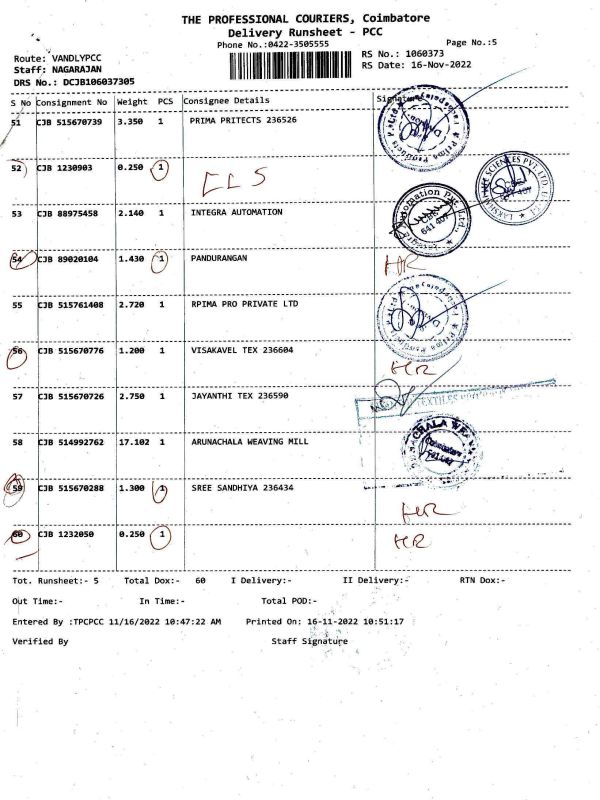 THE PROFESSIONAL COURIERS, Coimbatore
Delivery Runsheet - PCC
Phone No.:0422-3505555
Page No.:5
Route: VANDLYPCC
RS No.: 1060373
Staff: NAGARAJAN
RS Date: 16-Nov-2022
DRS No.: DCJB106037305
S No Consignment No Weight PCS Consignee Details Signature
51 CJB 515670739 3.350 1 PRIMA PRITECTS 236526
52 CJB 1230903 0.250 1
CLS
53 CJB 88975458 2.140 1 INTEGRA AUTOMATION
641 407
54 CJB 89020104 1.430 1 PANDURANGAN HR
55 CJB 515761408 2.720 1 RPIMA PRO PRIVATE LTD
56 CJB 515670776 1.200 1 VISAKAVEL TEX 236604 HR
57 CJB 515670726 2.750 1 JAYANTHI TEX 236590
58 CJB 514992762 17.102 1 ARUNACHALA WEAVING MILL
59 CJB 515670288 1.300 1 SREE SANDHIYA 236434 HR
60 CJB 1232050 0.250 1 HR
Tot. Runsheet:- 5 Total Dox:- 60 I Delivery:- II Delivery:- RTN Dox:-
Out Time:- In Time:- Total POD:-
Entered By :TPCPCC 11/16/2022 10:47:22 AM Printed On: 16-11-2022 10:51:17
Verified By Staff Signature